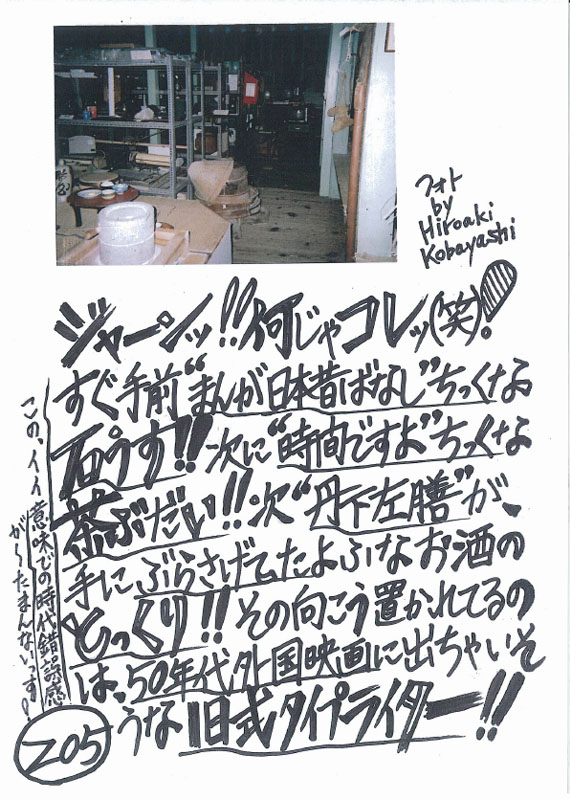 フォト
by
Hiroaki
Kobayashi
ジャーンッ!!何じゃコレッ(笑)!
すぐ手前“まんが日本昔ばなし”ちっくな
石うす!!次に“時間ですよ”ちっくな
茶ぶだい!!次“丹下左膳”が、
手にぶらさげてたよふなお酒の
とっくり!!その向こう置かれてるの
は、50年代外国映画に出ちゃいそ
うな旧式タイプライター!!
この、イイ意味での時代錯誤感
がくたまんないっす!
205